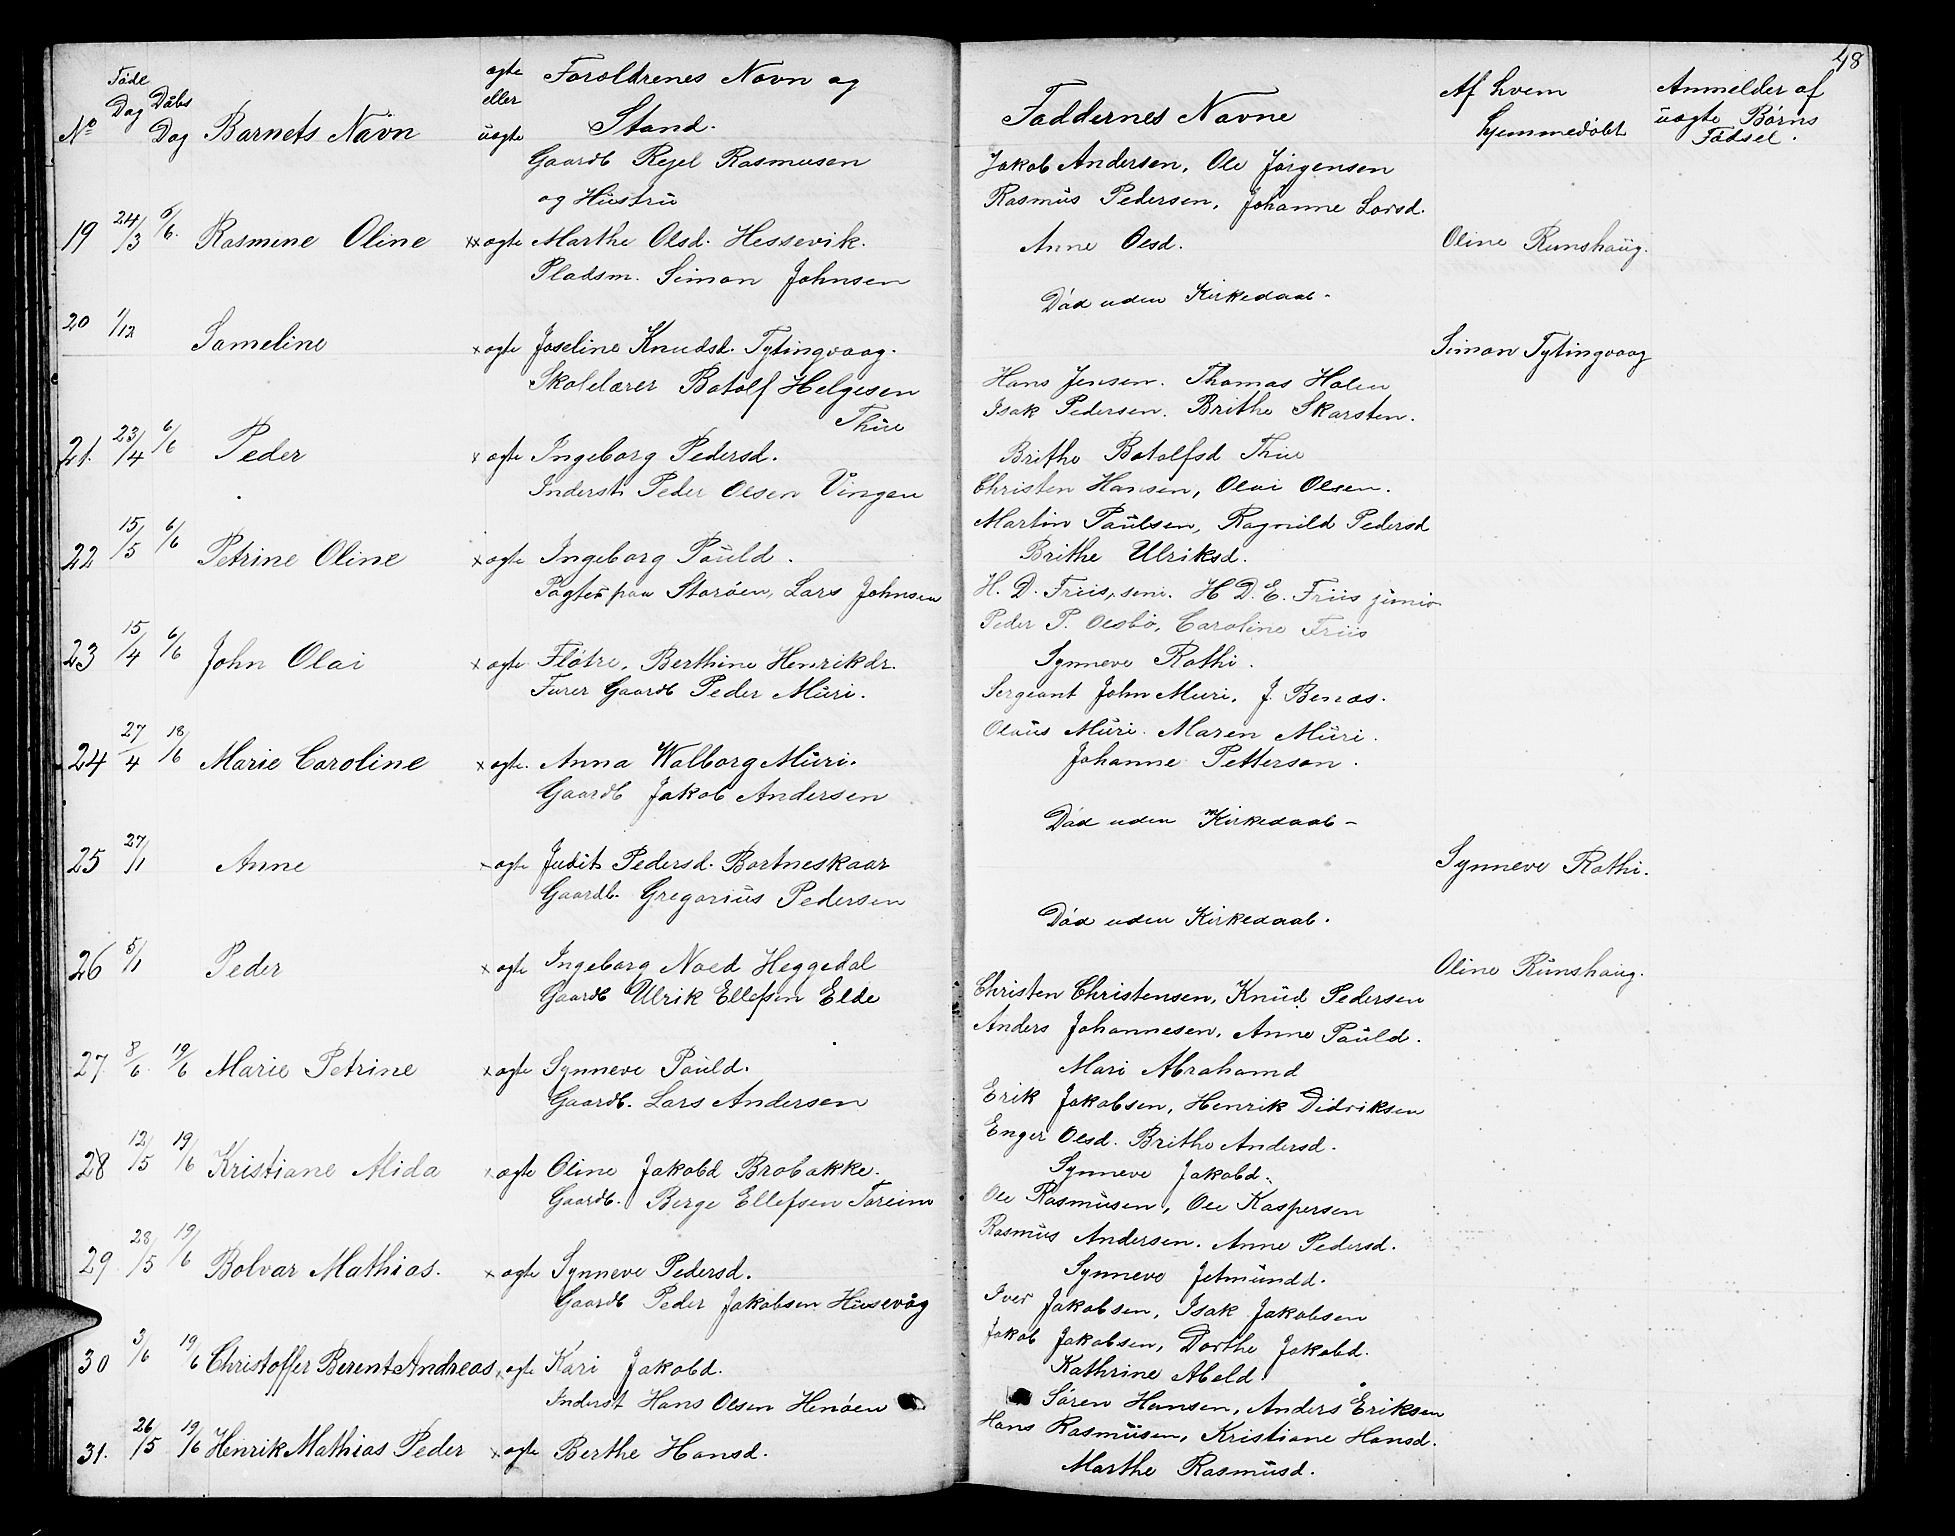 48
Föde Dag
Döbs Dag
No
Barnets Navn
ægte eller uægte
Forældrenes Navn og Stand.
Faddernes Navne
Af hvem hjemmedöbt
Anmelder af uægte Börns Födsel.
Gaardb Rejel Rasmusen
og Hustru
19 24/3 5/6. Rasmine Oline x ægte Marthe Olsd. Hessevik.
Pladsm. Simon Johnsen
20 1/12 Sameline x ægte Joseline Knudsd. Tytingvaag.
Skolelærer Botolf Helgesen
Thue
21. 23/4 6/6 Peder x ægte Ingeborg Pedersd.
Inderst Peder Olsen Vingen
22 15/5 6/6 Petrine Oline x ægte Ingeborg Pauld.
Pagter paa Storöen, Lars Johnsen
23 15/4 6/6 John Olai x ægte Flötre, Berthine Henrikdr.
Furer Gaardb Peder Muri.
24 27/4 18/6 Marie Caroline x ægte. Anna Walborg Muri.
Gaardb Jakob Andersen
25 27/1 Anne x ægte Judit Pedersd. Bortneskaar
Gaardb. Gregorius Pedersen
26 5/1 Peder x ægte Ingeborg Noed Heggedal
Gaardb Ulrik Ellefsen Elde
27 8/6 19/6 Marie Petrine x ægte Synneve Pauld.
Gaardb. Lars Andersen
28 12/5 19/6 Kristiane Mida x ægte Oline Jakobd Brobakke.
Gaardb. Berge Ellefsen Toreim
29 28/5 19/6 Bolvar Mathias. x ægte Synneve Pedersd.
Gaardb Peder Jakobsen Husevåg
30 3/6 19/6 Christoffer Berent Andreas x ægte Kari Jakobd.
Inderst Hans Olsen Henöen
31. 26/5 19/6 Henrik Mathias Peder x ægte Berthe Hansd.
Jakob Andersen, Ole Jörgensen
Rasmus Pedersen, Johanne Larsd.
Anne Olsd. Oline Runshaug.
Död uden Kirkedaab.
Simon Tytingvaag
Hans Jensen. Thomas Holen
Isak Pedersen. Brithe Skarsten.
Brithe Botolfsd Thue
Christen Hansen, Olai Olsen.
Martin Paulsen, Ragnild Pedersd
Brithe Ulriksd.
H. D. Friis, seni. H D. E. Friis junior
Peder P. Oesbö, Caroline Friis
Synneve Rothi.
Sergeant John Muri, J. Benæs.
Olaus Muri. Maren Muri.
Johanne Petterson.
Död uden Kirkedaab-
Synneve Rothi.
Död uden Kirkedaab.
Oline Runshaug.
Christen Christensen, Knud Pedersen
Anders Johannesen, Anne Pauld.
Mari Abrahamd
Erik Jakobsen, Henrik Didriksen
Enger Olsd. Brithe Andersd.
Synneve Jakobd.
Ole Rasmusen, Ole Kaspersen
Rasmus Andersen. Anne Pedersd.
Synneve Jetmundd.
Iver Jakobsen, Isak Jakobsen
Jakob Jakobsen, Dorthe Jakobd.
Kathrine Abeld.
Sören Hansen, Anders Eriksen
Hans Rasmusen, Kristiane Hansd.
Marthe Rasmusd.